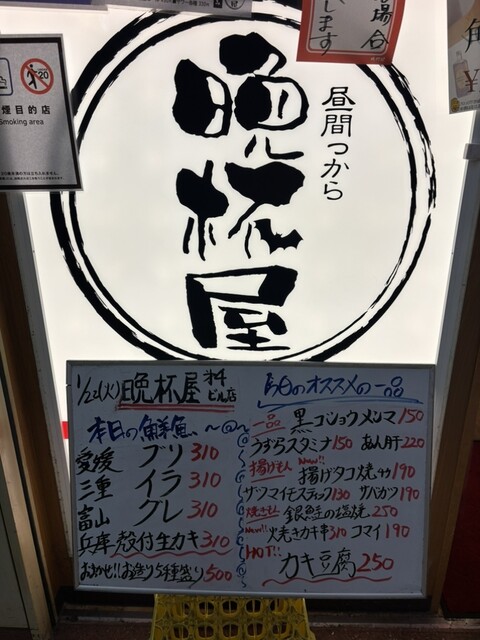 場合
します
20
煙目的店
Smoking area
昼間っから
晩杯屋
1/22(火) 晩杯屋 第4ビル店
本日の鮮魚
愛媛 ブリ 310
三重 イラ 310
富山 グレ 310
兵庫 殻付生カキ 310
おまかせ!!お造り5種盛り500
本日のオススメの一品
一品 黒コショウメンマ150
うずらスタミナ150 あん肝220
揚げもん New!! 揚げタコ焼き 190
サツマイモスティック130 サバカツ190
焼きもん 銀鮭の塩焼 250
New!! 焼きカキ串310 コマイ190
HOT!! カキ豆腐250